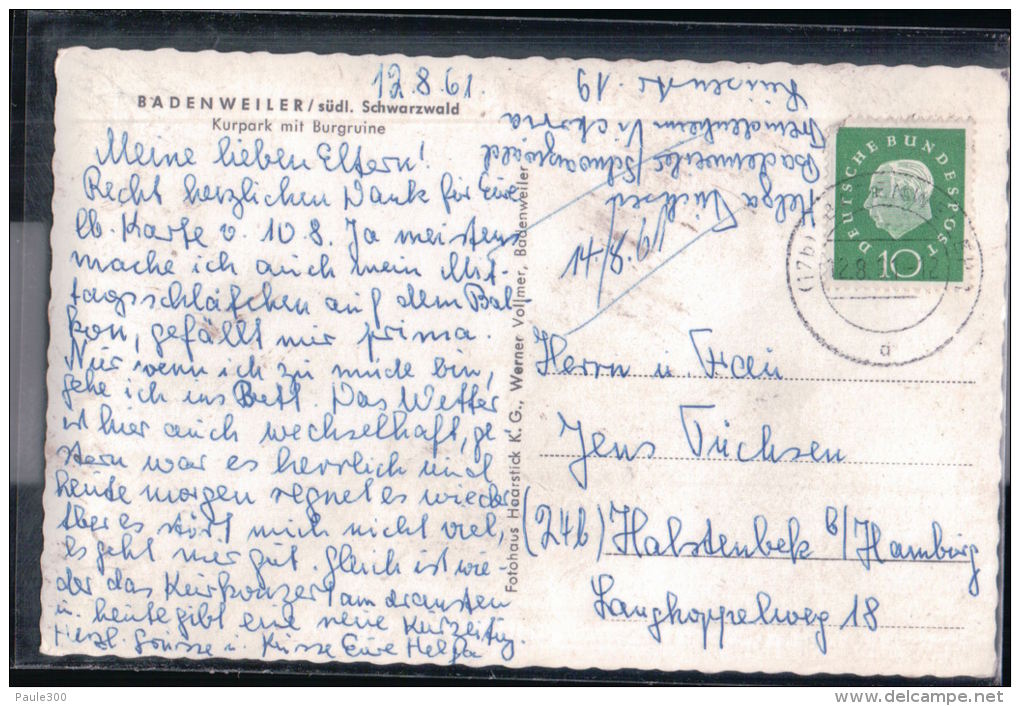 12.8.61.
BADENWEILER/südl. Schwarzwald
Kurpark mit Burgruine
Meine lieben Eltern!
Recht herzlichen Dank für Eure
lb. Karte v. 10.8. Ja meistens
mache ich auch mein Mit-
tagsschläfchen auf dem Bal-
kon, gefällt mir prima.
Nur wenn ich zu müde bin,
gehe ich ins Bett. Das Wetter
ist hier auch wechselhaft, ge-
stern war es herrlich und
heute morgen regnet es wieder
Aber es stört mich nicht viel,
es geht mir gut. Gleich ist wie-
der das Kurkonzert
u. heute gibt eine neue Kurzeitung.
Herzl. Grüsse u. Küsse Eure Helga
Fotohaus Haarstick K. G., Werner Vollmer, Badenweiler
Helga Tüchsen
Badenweiler/Schwarzwald
Fremdenheim Victoria
Luisenstr. 19
14/8.61
DEUTSCHE BUNDESPOST
10
(17b)
12.8.
a
Herrn u. Frau
Jens Tüchsen
(24b) Halstenbek b/Hamburg
Langkoppelweg 18
Paule300
delcampe.net